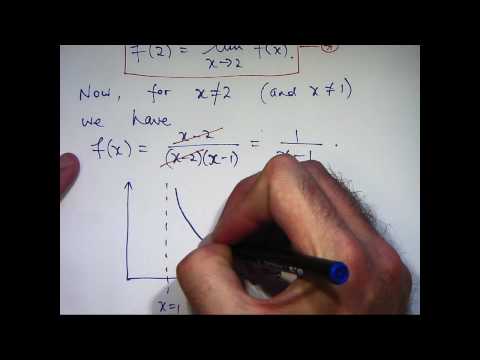 f(2) = lim f(x). — *
x→2
Now, for x≠2 (and x≠1)
we have
f(x) = x-2 / (x-2)(x-1) = 1 / x-1 .
x=1